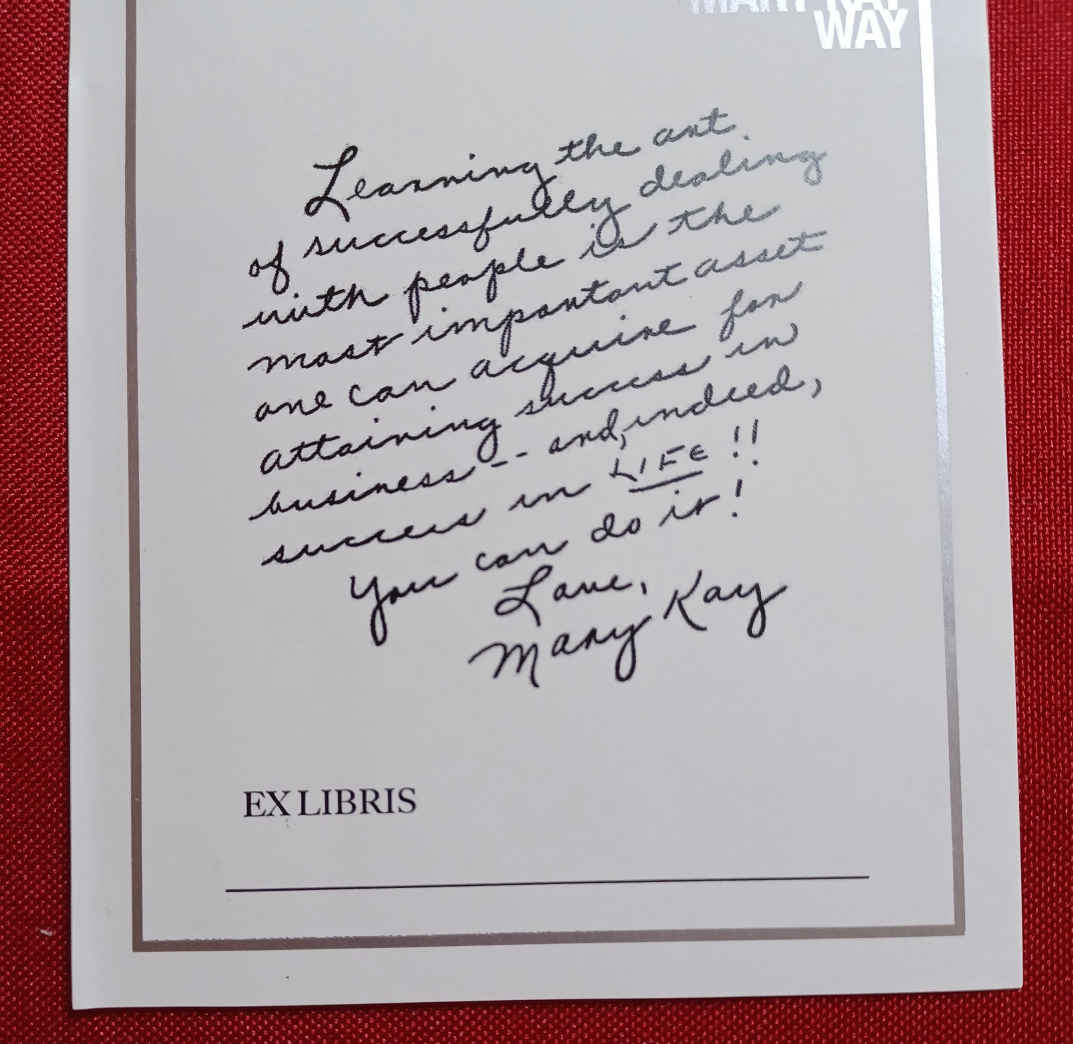 MARY KAY
WAY
Learning the art
of successfully dealing
with people is the
most important asset
one can acquire for
attaining success in
business -- and, indeed,
success in LIFE !!
You can do it!
Love,
Mary Kay
EX LIBRIS